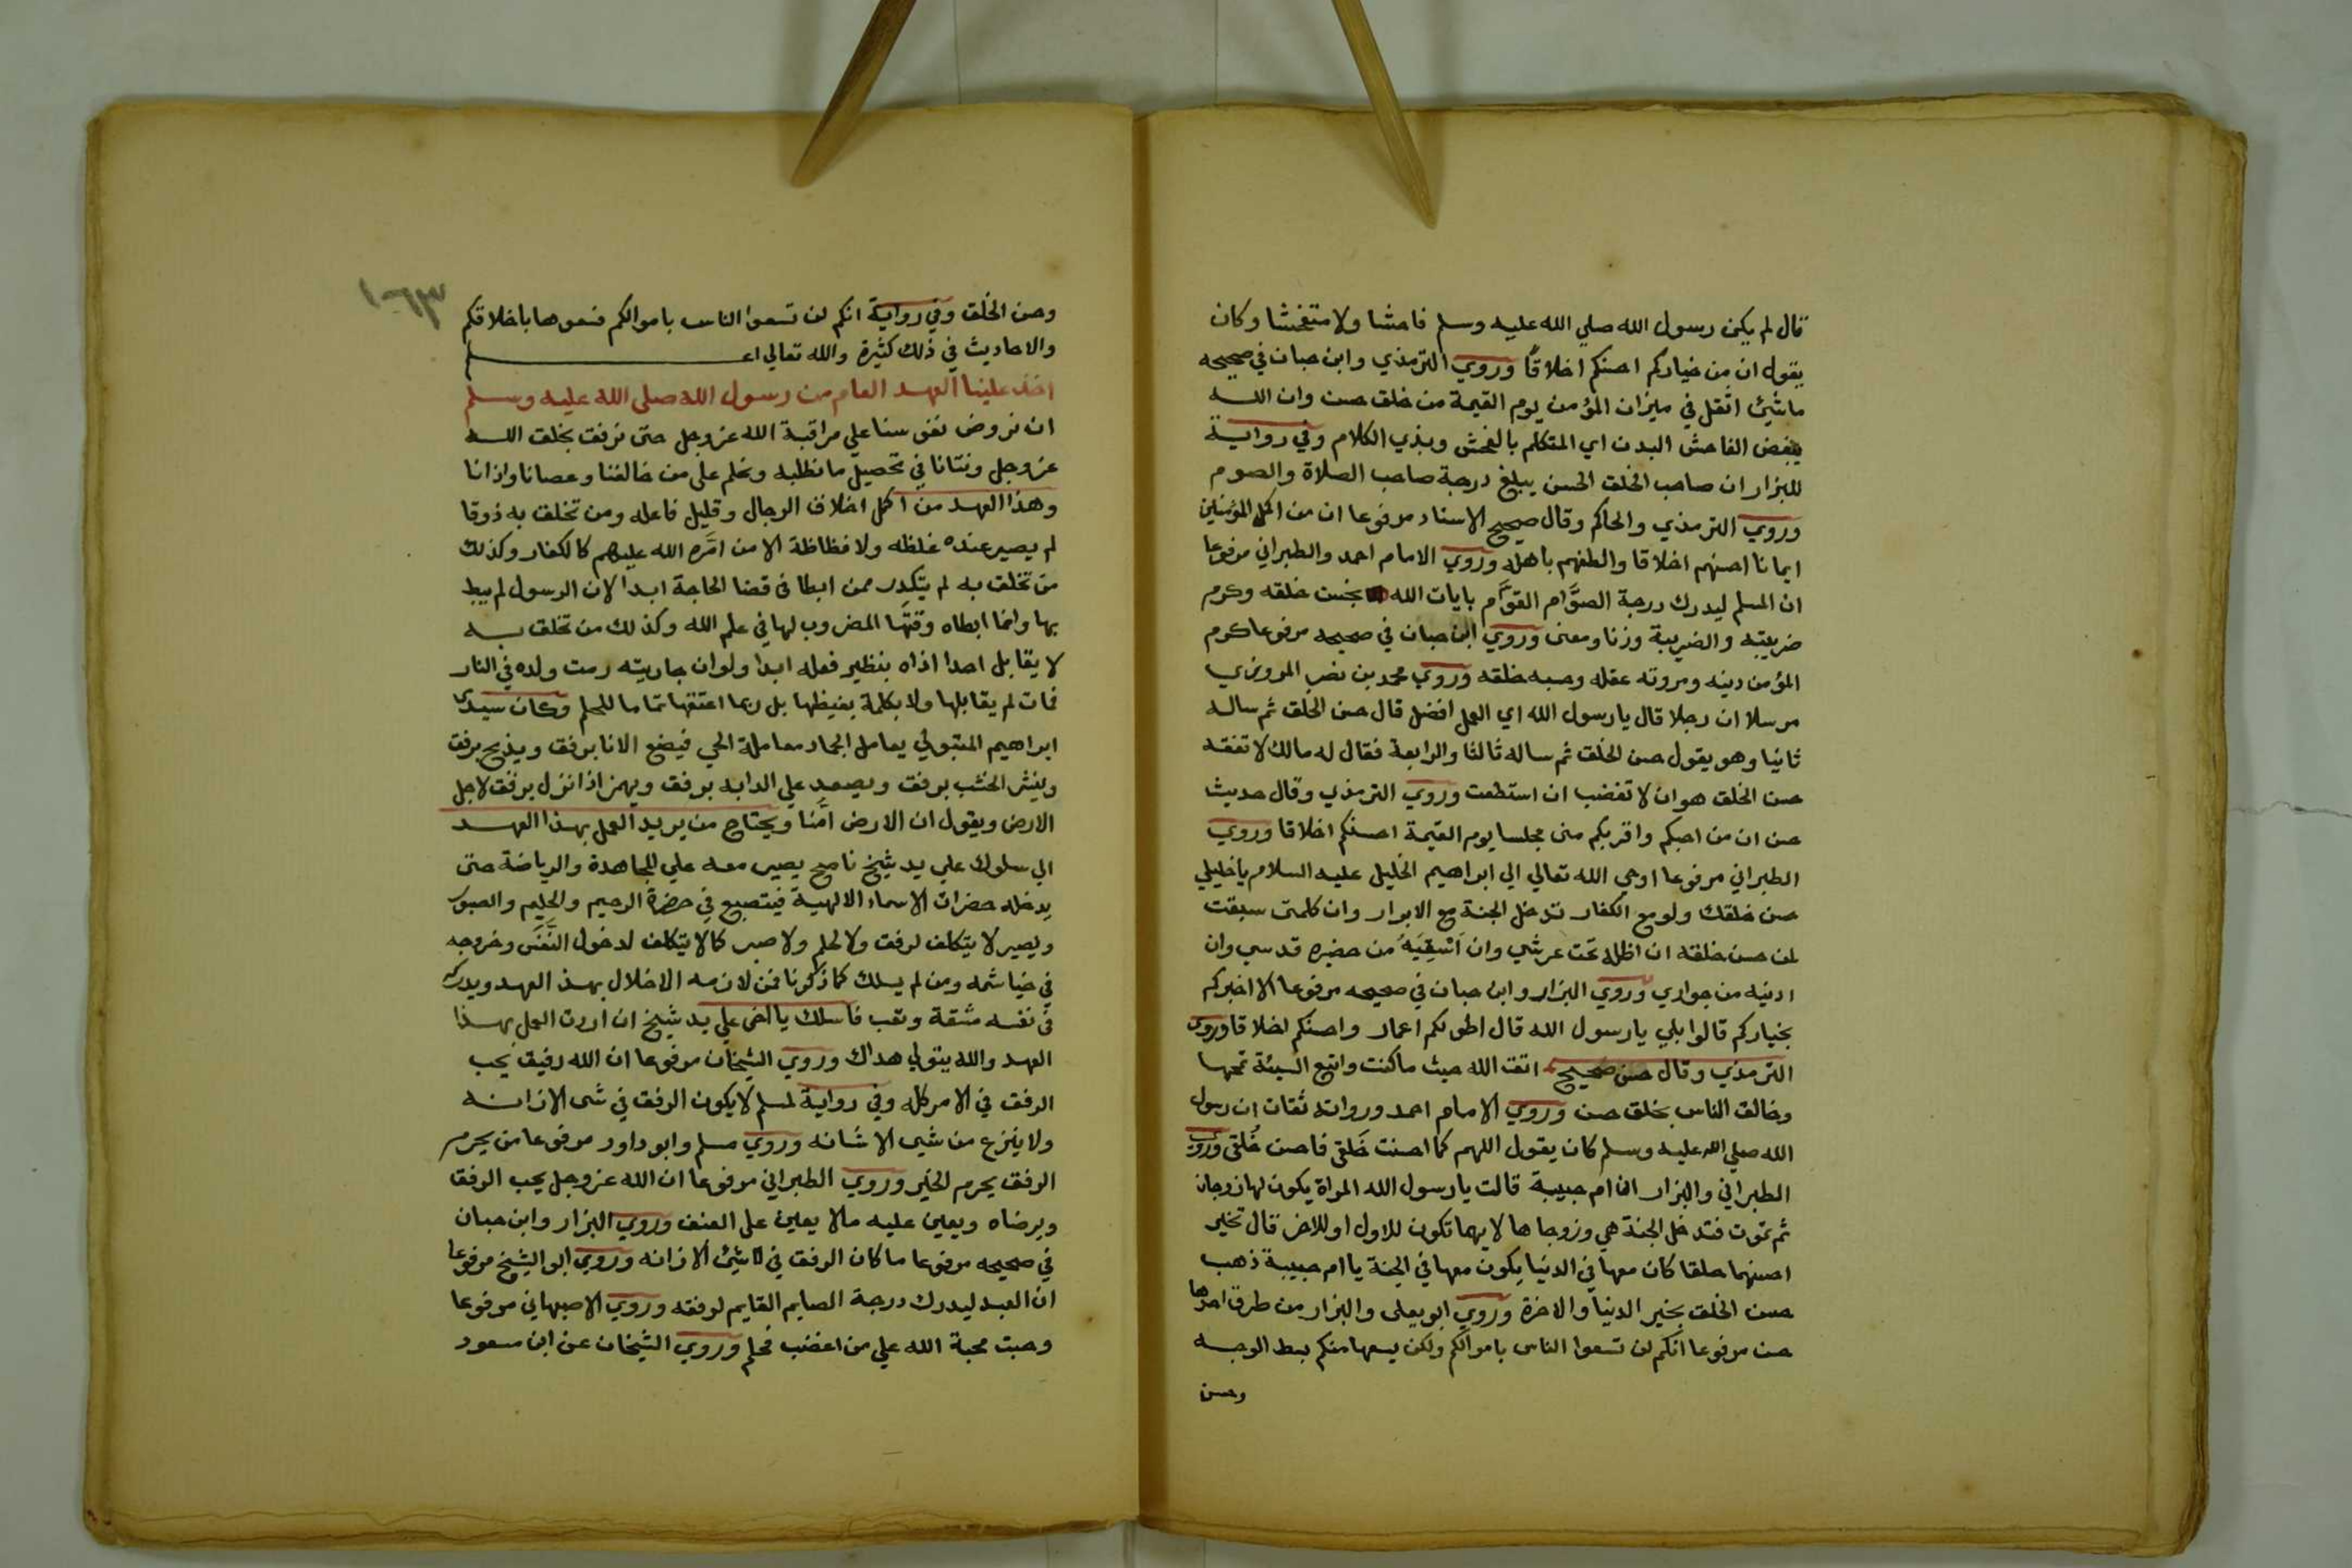 قال لم يكن رسول الله صلي الله عليه وسلم فاحشا ولا متفحشا وكان
يقول ان من خياركم احسنكم اخلاقًا وروي الترمذي وابن حبان في صحيحه
ما شيئ اثقل في ميزان المؤمن يوم القيمة من خلق حسن وان الله
يبغض الفاحش البدن اي المتكلم بالفحش وبذي الكلام وفي رواية
للبزار ان صاحب الخلق الحسن يبلغ درجة صاحب الصلاة والصوم
وروي الترمذي والحاكم وقال صحيح الاسناد مرفوعا ان من اكمل المؤمنين
ايمانا احسنهم اخلاقا والطفهم باهله وروي الامام احمد والطبراني مرفوعا
ان المسلم ليدرك درجة الصوَّام القوَّام بايات الله بحسن خلقه وكرم
ضريبته والضريبة وزنا ومعنى وروي ابن حبان في صحيحه مرفوعا كرم
المؤمن دينه ومروته عقله وحسبه خلقه وروي محمد بن نصر المروزي
مرسلا ان رجلا قال يا رسول الله اي العمل افضل قال حسن الخلق ثم ساله
ثانيا وهو يقول حسن الخلق ثم ساله ثالثا والرابعة فقال له مالك لا تفقه
حسن الخلق هو ان لا تغضب ان استطعت وروي الترمذي وقال حديث
حسن ان من احبكم واقربكم منى مجلسا يوم القيمة احسنكم اخلاقا وروي
الطبراني مرفوعا اوحي الله تعالي الي ابراهيم الخليل عليه السلام يا خليلي
حسن خلقك ولو مع الكفار تدخل الجنة مع الابرار وان كلمتى سبقت
لمن حسن خلقه ان اظله تحت عرشي وان اَسْقِيَهُ من حضيره قدسي وان
ادنيه من جواري وروي البزار وابن حبان في صحيحه مرفوعا الا اخبركم
بخياركم قالوا بلي يا رسول الله قال اطولكم اعمار واحسنكم اخلاقا وروى
الترمذي وقال حسن صحيح اتق الله حيث ما كنت واتبع السيئة تمحها
وخالق الناس بخلق حسن وروي الامام احمد ورواته ثقات ان رسول
الله صلي الله عليه وسلم كان يقول اللهم كما احسنت خَلقى فاحسن خُلقى وروي
الطبراني والبزار ان ام حبيبة قالت يا رسول الله المراة يكون لها زوجان
ثم تموت فتدخل الجنة هي وزوجاها لايهما تكون للاول او للاخر قال تخير
احسنهما خلقا كان معها في الدنيا يكون معها في الجنة يا ام حبيبة ذهب
حسن الخلق بخير الدنيا والاخرة وروي ابو يعلى والبزار من طرق احدها
حسن مرفوعا انكم لن تسعوا الناس باموالكم ولكن يسعها منكم بسط الوجه
وحسن
وحسن الخُلق وفي رواية انكم لن تسعوا الناس باموالكم فسعوها باخلاقكم
والاحاديث في ذلك كثيرة والله تعالي اعلم
اخذ علينا العهد العام من رسول الله صلى الله عليه وسلم
ان نروض نفوسنا علي مراقبة الله عز وجل حتى نرفق بخلق الله
عز وجل ونتانا في تحصيل ما نطلبه ونحلم على من خالفنا وعصانا واذانا
وهذا العهد من اكمل اخلاق الرجال وقليل فاعله ومن تخلق به ذوقا
لم يصير عنده غلظه ولا فظاظة الا من امَره الله عليهم كالكفار وكذلك
من تخلق به لم يتكدر ممن ابطا فى قضا الحاجة ابدا لان الرسول لم يبط
بها وانما ابطاه وقتها المضروب لها في علم الله وكذلك من تخلق به
لا يقابل احدا اذاه بنظير فعله ابدا ولو ان جاريته رمت ولده في النار
فمات لم يقابلها ولا بكلمة يغيظها بل ربما اعتقها تماما للحلم وكان سيدى
ابراهيم المتبولي يعامل الجماد معاملة الحي فيضع الانا برفق ويذبح برفق
وينشر الخشب برفق ويصعد علي الدابه برفق ويهمز اذا نزل برفق لاجل
الارض ويقول ان الارض امَّنا ويحتاج من يريد العمل بهذا العهد
الي سلوك علي يد شيخ ناصح يصير معه علي المجاهدة والرياضة حتى
يدخله حضرات الاسماء الالهية فيتصبغ في حضرة الرحيم والحليم والصبور
ويصير لا يتكلف لرفق ولا لحلم ولا صبر كما لا يتكلف لدخول النَّفَس وخروجه
في خياشمه ومن لم يسلك كما ذكرنا فمن لازمه الاخلال بهذ العهد ويدركه
فى نفسه مشقة وتعب فاسلك يا اخى علي يد شيخ ان اردت العمل بهذا
العهد والله يتولي هداك وروي الشيخان مرفوعا ان الله رفيق يحب
الرفق في الامر كله وفي رواية لمسلم لا يكون الرفق في شى الا زانه
ولا ينزع من شيى الا شانه وروي مسلم وابو داود مرفوعا من يحرم
الرفق يحرم الخير وروي الطبراني مرفوعا ان الله عز وجل يحب الرفق
ويرضاه ويعين عليه مالا يعلين على العنف وروي البزار وابن حبان
في صحيحه مرفوعا ما كان الرفق في شيئ الا زانه وروي ابو الشيخ مرفوعا
ان العبد ليدرك درجة الصايم القايم لرفقه وروي الاصبهاني مرفوعا
وجبت محبة الله علي من اغضب فحلم وروي الشيخان عن ابن مسعود